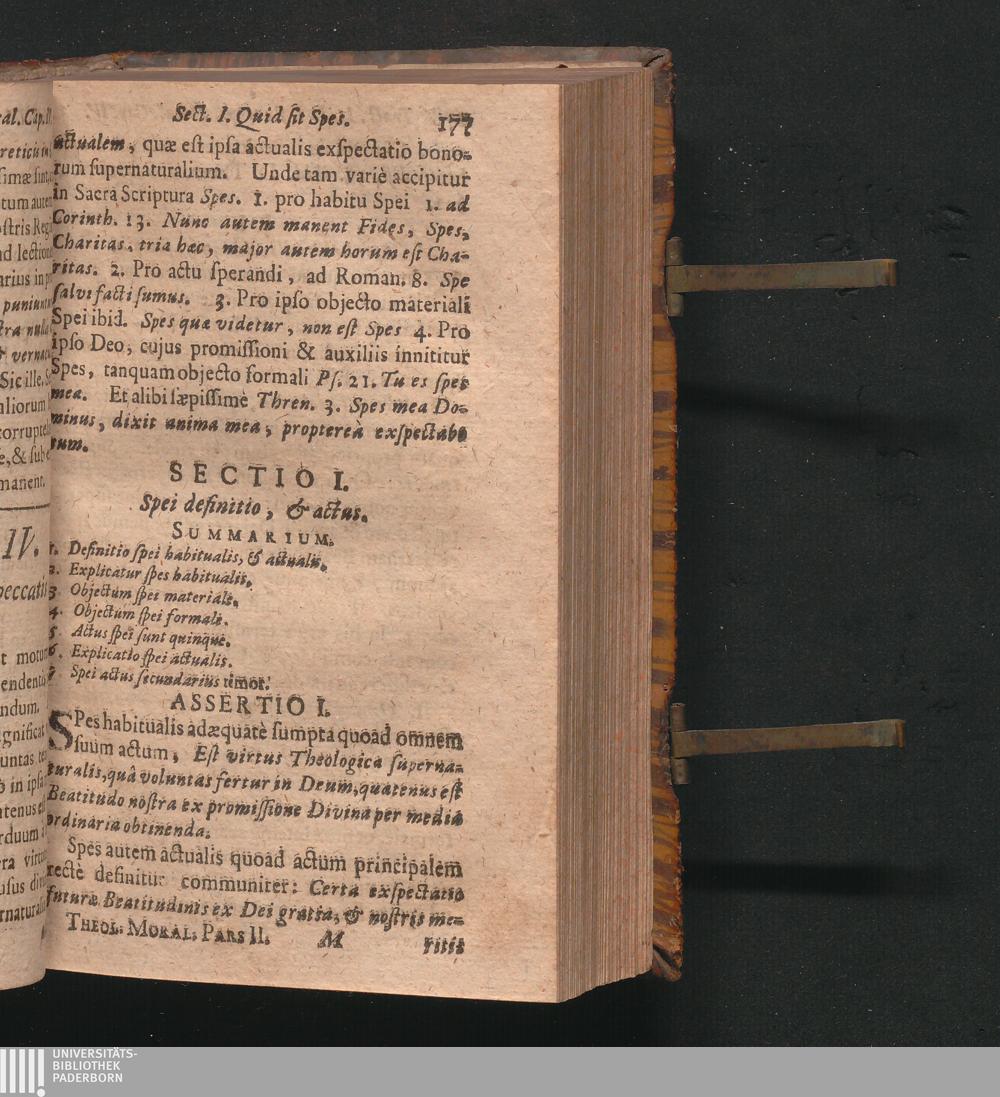 Sect. I. Quid ſit Spes. 177
actualem, quæ eſt ipſa actualis exſpectatio bono-
rum ſupernaturalium. Unde tam variè accipitur
in Sacra Scriptura Spes. 1. pro habitu Spei 1. ad
Corinth. 13. Nunc autem manent Fides, Spes,
Charitas, tria hæc, major autem horum eſt Cha-
ritas. 2. Pro actu ſperandi, ad Roman. 8. Spe
ſalvi facti ſumus. 3. Pro ipſo objecto materiali
Spei ibid. Spes quæ videtur, non eſt Spes 4. Pro
ipſo Deo, cujus promiſſioni & auxiliis innititur
Spes, tanquam objecto formali Pſ. 21. Tu es ſpes
mea. Et alibi ſæpiſſimè Thren. 3. Spes mea Do-
minus, dixit anima mea, proptereà exſpectabo
eum.
SECTIO I.
Spei definitio, & actus.
SUMMARIUM.
1. Definitio ſpei habitualis, & actualis.
2. Explicatur ſpes habitualis.
3 Objectum ſpei materiale.
4. Objectum ſpei formale.
5 Actus ſpei ſunt quinque.
6. Explicatio ſpei actualis.
7 Spei actus ſecundarius timor.
ASSERTIO I.
SPes habitualis adæquatè ſumpta quoad omnem
ſuum actum, Eſt virtus Theologica ſuperna-
turalis, quâ voluntas fertur in Deum, quatenus eſt
Beatitudo noſtra ex promiſſione Divina per media
ordinaria obtinenda.
Spes autem actualis quoad actum principalem
rectè definitur communiter: Certa exſpectatio
futuræ Beatitudinis ex Dei gratia, & noſtris me-
THEOL. MORAL. PARS II. M ritis
UNIVERSITÄTS-
BIBLIOTHEK
PADERBORN